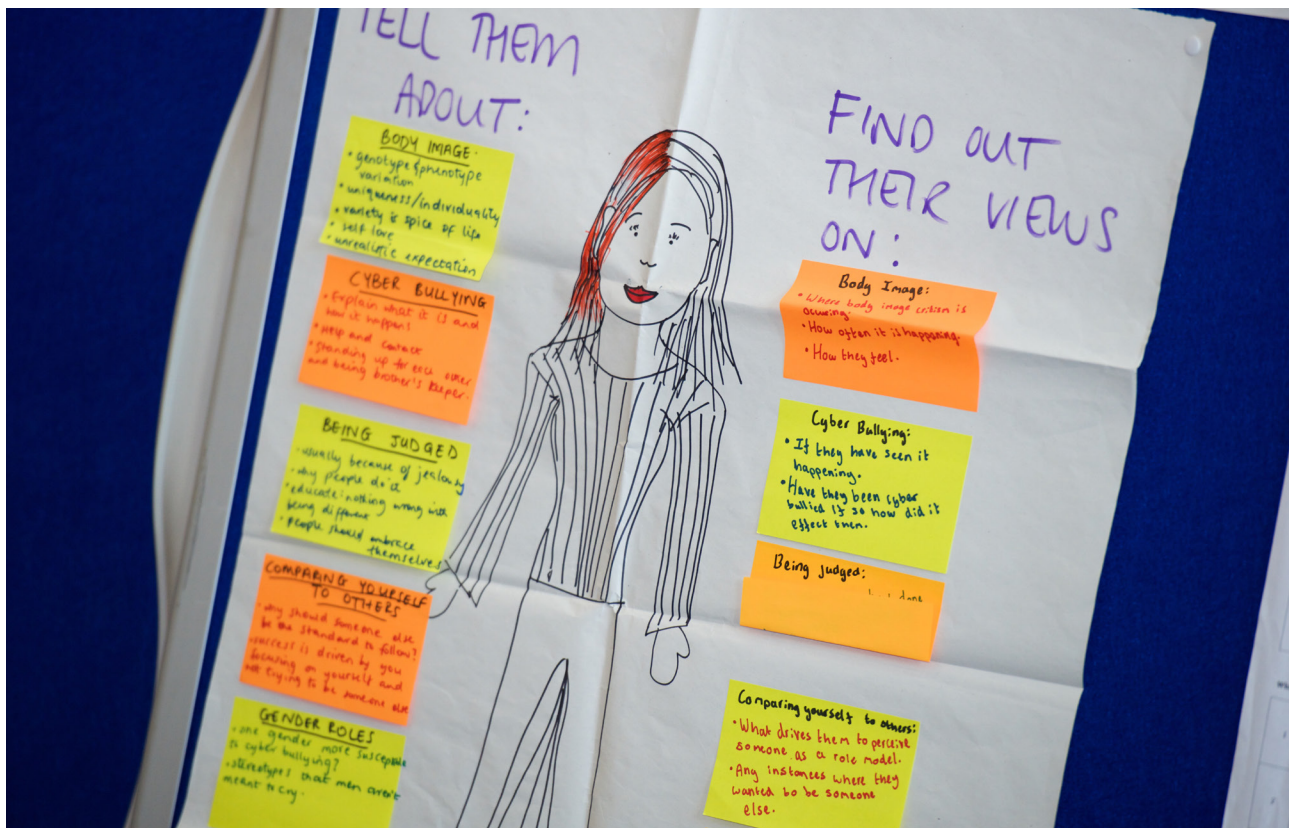 TELL THEM
ABOUT:
BODY IMAGE
• genotype & phenotype
variation
• uniqueness/individuality
• variety is spice of life
• self love
• unrealistic expectation
CYBER BULLYING
• Explain what it is and
how it happens
• Help and contact
• Standing up for each other
and being brother's keeper.
BEING JUDGED
• usually because of jealousy
• why people do it
• educate: nothing wrong with
being different
• People should embrace
themselves
COMPARING YOURSELF
TO OTHERS
• why should someone else
be the standard to follow?
• success is driven by you
focusing on yourself and
not trying to be someone else
GENDER ROLES
• one gender more susceptible
to cyber bullying?
• stereotypes that men aren't
meant to cry.
FIND OUT
THEIR VIEWS
ON:
Body Image:
• Where body image critism is
occuring.
• How often it is happening.
• How they feel.
Cyber Bullying:
• If they have seen it
happening.
• Have they been cyber
bullied if so how did it
effect them.
Being judged:
done
Comparing yourself to others:
• What drives them to perceive
someone as a role model.
• Any instances where they
wanted to be someone
else.